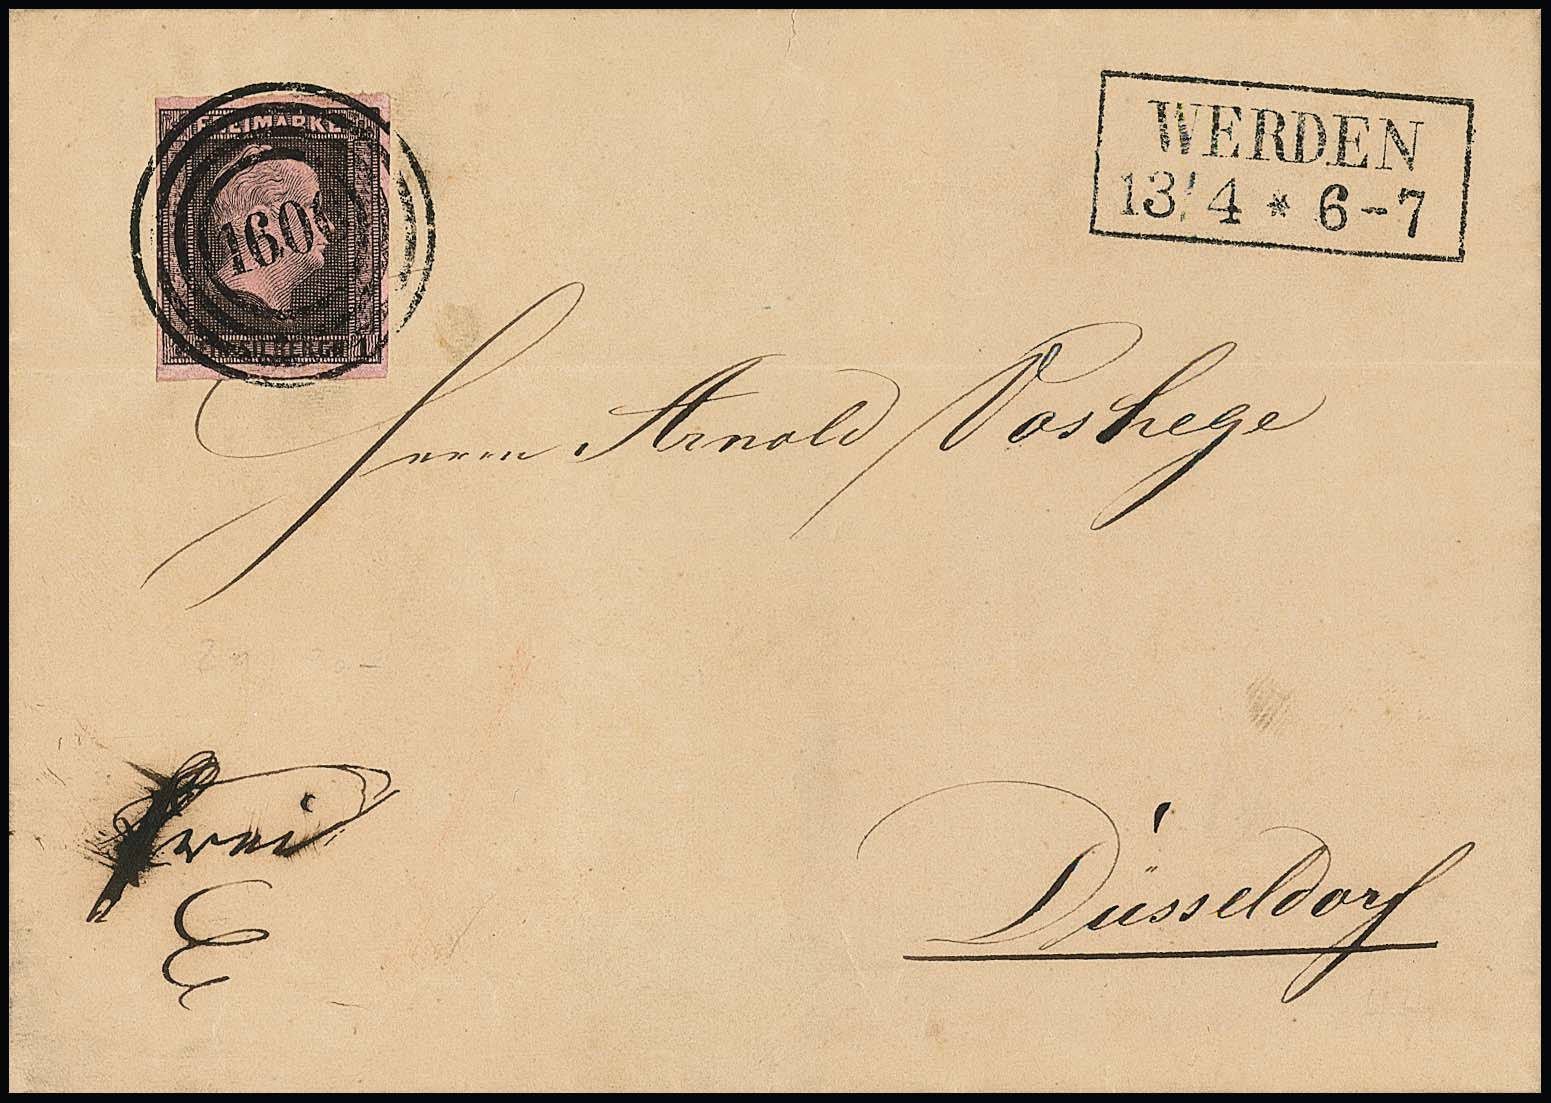 FREIMARKE
1601
1 SILBERGR. 1
WERDEN
13/4 * 6-7
Herrn Arnold Voshege
frei
Düsseldorf